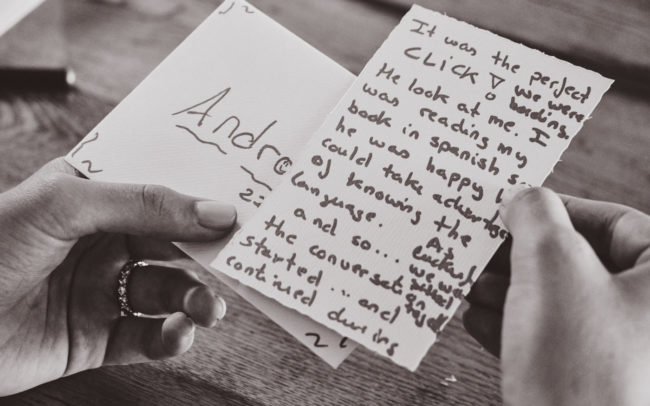 Andre
It was the perfect
CLICK! we were
bording.
He look at me. I
was reading my
book in spanish so
he was happy
could take advantage
of knowing the
language.
and so... we were
the conversation
started... and
continued during